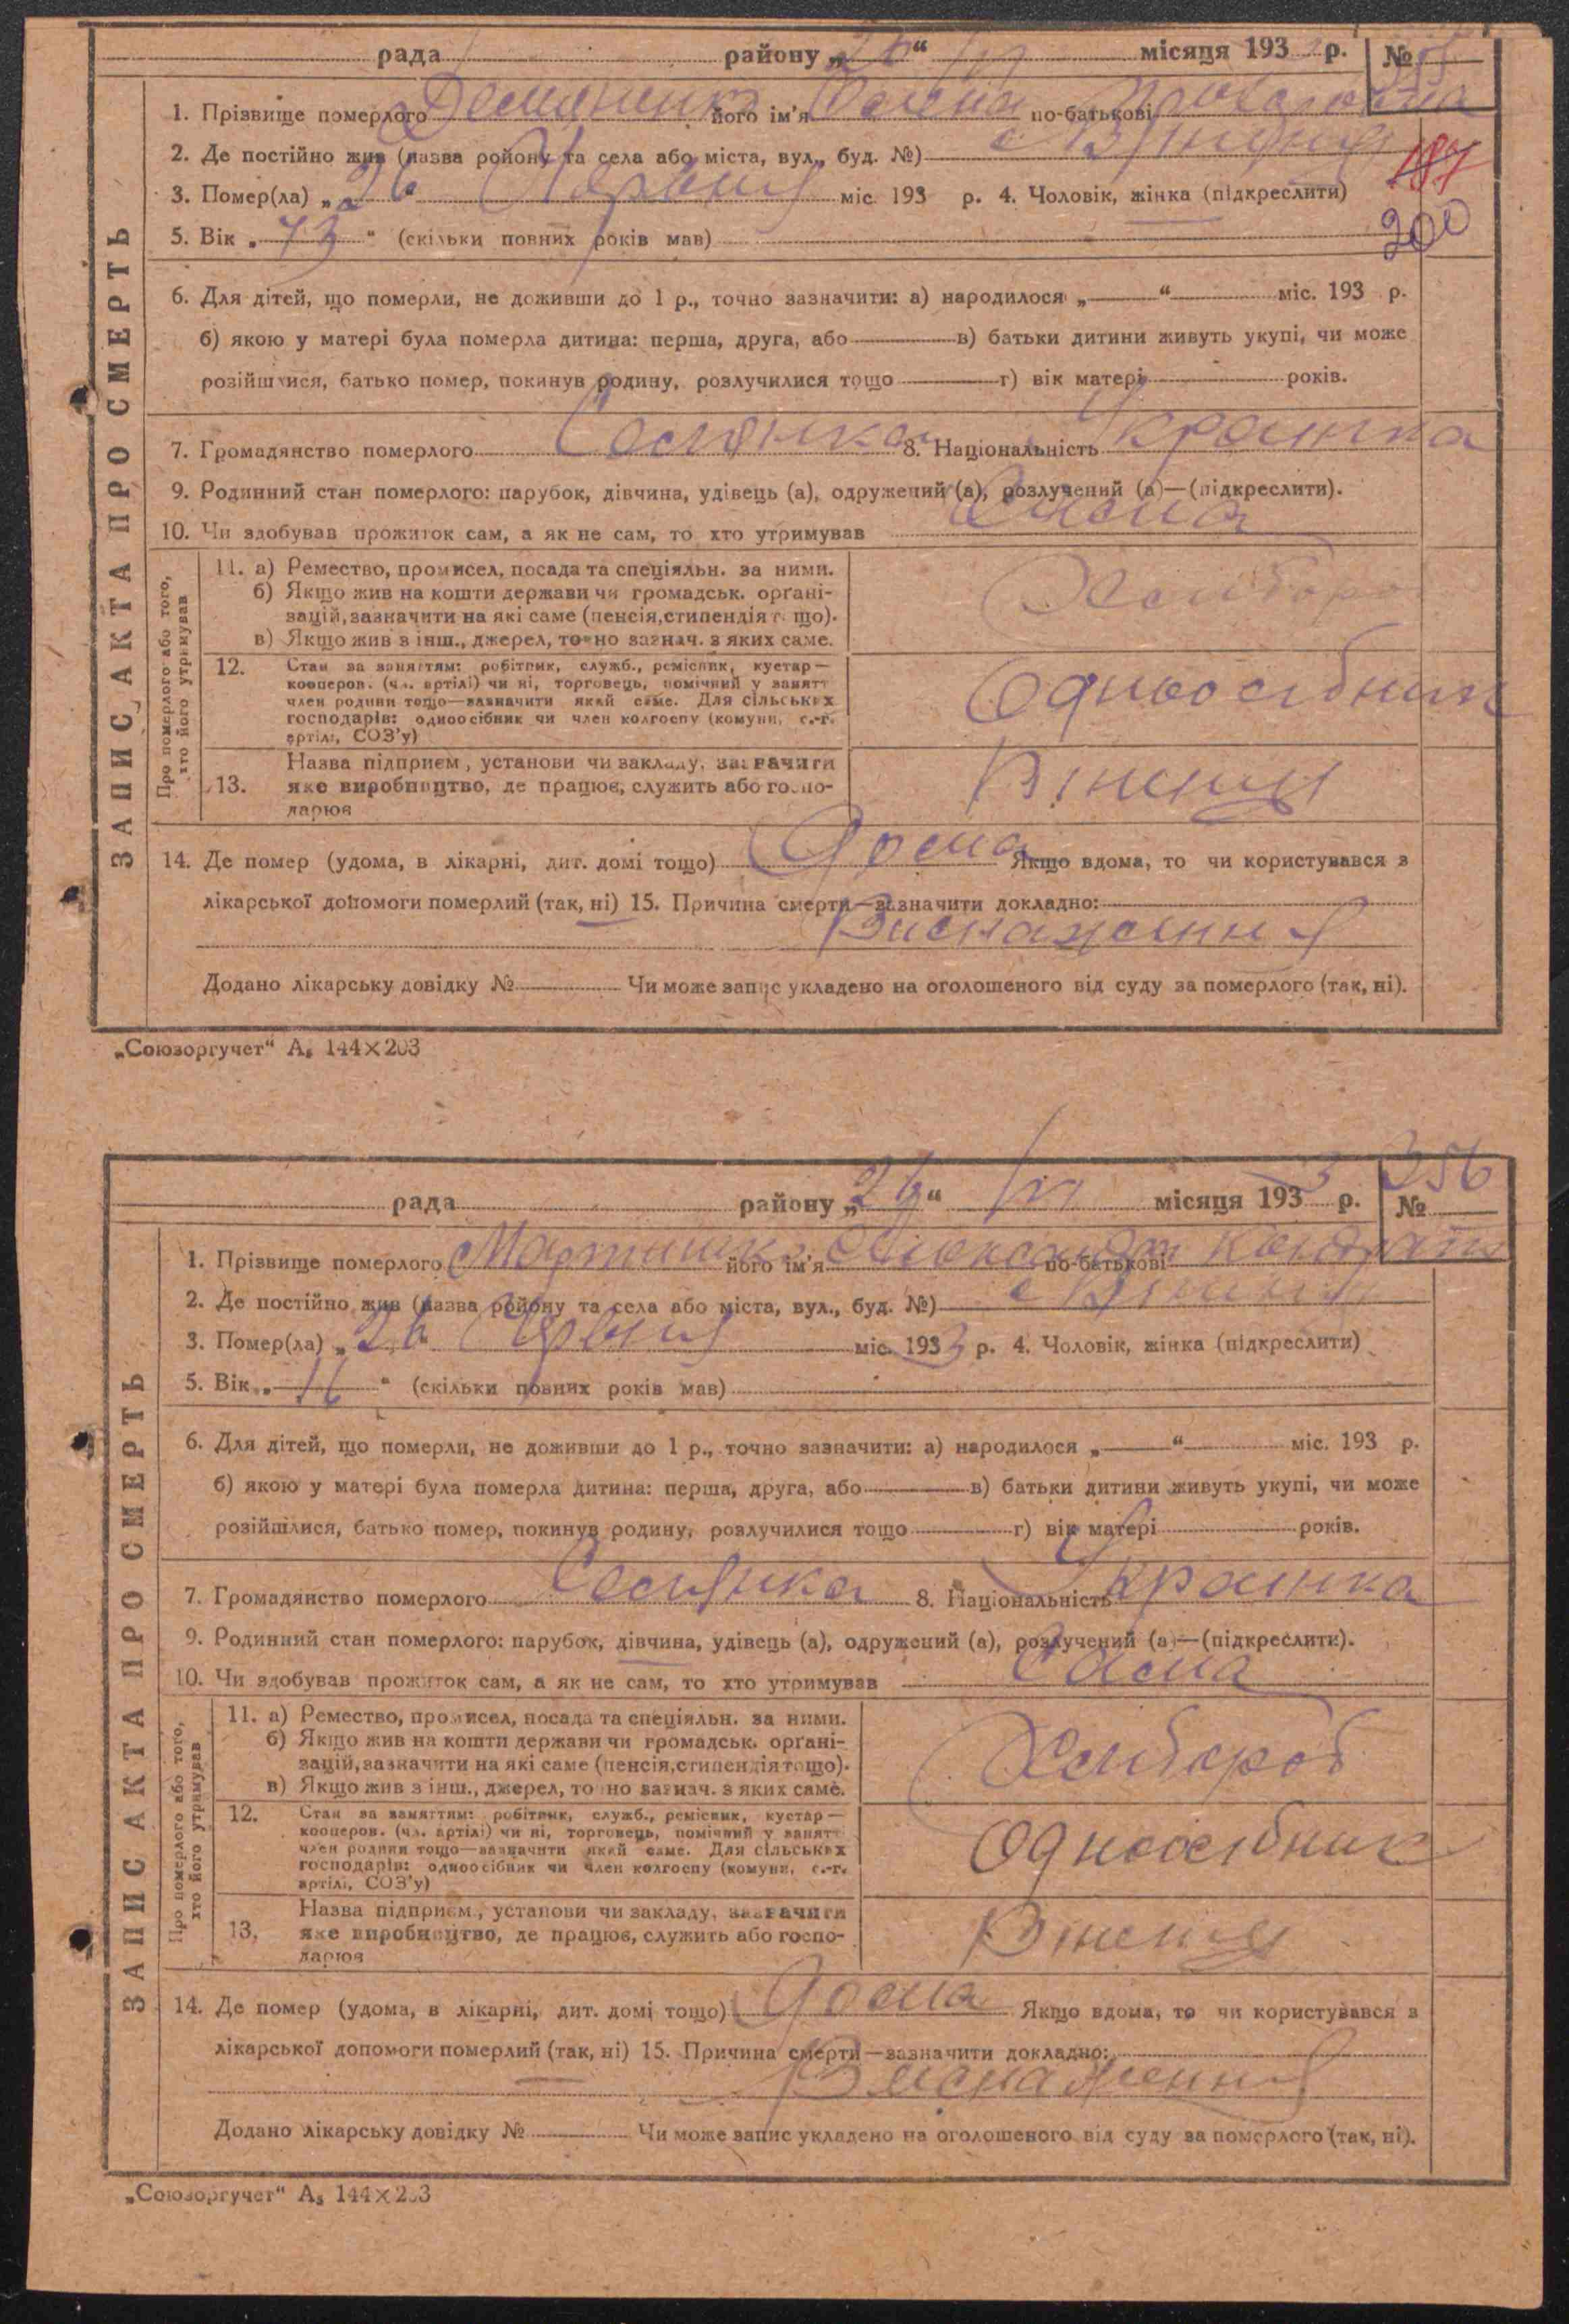 рада районy „26“ VI місяця 193 р. № 355
1. Прізвище померлого Демяненко його ім'я Олена по-батькові
2. Де постійно жив (назва ройону та села або міста, вул., буд. №) с
187
3. Помер(ла) „26“ Червня міс. 193 р. 4. Чоловік, жінка (підкреслити)
200
5. Вік „73“ (скільки повних років мав)
6. Для дітей, що померли, не доживши до 1 р., точно зазначити: а) народилося „ “ міс. 193 р.
б) якою у матері була померла дитина: перша, друга, або в) батьки дитини живуть укупі, чи може
розійшлися, батько помер, покинув родину, розлучилися тощо г) вік матері років.
7. Громадянство померлого Селянка 8. Національність Украінка
9. Родинний стан померлого: парубок, дівчина, удівець (а), одружений (а), розлучений (а)—(підкреслити).
10. Чи здобував прожиток сам, а як не сам, то хто утримував Сама
ЗАПИС АКТА ПРО СМЕРТЬ
Про померлого або того, хто його утримував
11. а) Ремество, промисел, посада та спеціяльн. за ними.
б) Якщо жив на кошти держави чи громадськ. орґані-
зацій, зазначити на які саме (пенсія, стипендія тощо).
в) Якщо жив з інш., джерел, точно зазнач. з яких саме.
Хлібороб
12. Стан за заняттям: робітник, служб., ремісник, кустар—
кооперов. (чл. артілі) чи ні, торговець, помічний у занятт
член родини тощо—зазначити який саме. Для сільських
господарів: одноосібник чи член колгоспу (комуни, с.-г.
артілі, СОЗ'у)
Одноосібник
13. Назва підприєм., установи чи закладу, зазначити
яке виробництво, де працює, служить або госпо-
дарює
14. Де помер (удома, в лікарні, дит. домі тощо) Дома Якщо вдома, то чи користувався з
лікарської допомоги померлий (так, ні) 15. Причина смерти—зазначити докладно:
Виснаження
Додано лікарську довідку № Чи може запис укладено на оголошеного від суду за померлого (так, ні).
„Союзоргучет“ А₅ 144×203
рада районy „26“ VI місяця 1933 р. № 356
1. Прізвище померлого Мартиненко його ім'я по-батькові Кондрат
2. Де постійно жив (назва ройону та села або міста, вул., буд. №) с
3. Помер(ла) „26“ Червня міс. 1933 р. 4. Чоловік, жінка (підкреслити)
5. Вік „16“ (скільки повних років мав)
6. Для дітей, що померли, не доживши до 1 р., точно зазначити: а) народилося „ “ міс. 193 р.
б) якою у матері була померла дитина: перша, друга, або в) батьки дитини живуть укупі, чи може
розійшлися, батько помер, покинув родину, розлучилися тощо г) вік матері років.
7. Громадянство померлого Селянка 8. Національність Украінка
9. Родинний стан померлого: парубок, дівчина, удівець (а), одружений (а), розлучений (а)—(підкреслити).
10. Чи здобував прожиток сам, а як не сам, то хто утримував Сама
ЗАПИС АКТА ПРО СМЕРТЬ
Про померлого або того, хто його утримував
11. а) Ремество, промисел, посада та спеціяльн. за ними.
б) Якщо жив на кошти держави чи громадськ. орґані-
зацій, зазначити на які саме (пенсія, стипендія тощо).
в) Якщо жив з інш., джерел, точно зазнач. з яких саме.
Хлібороб
12. Стан за заняттям: робітник, служб., ремісник, кустар—
кооперов. (чл. артілі) чи ні, торговець, помічний у занятт
член родини тощо—зазначити який саме. Для сільських
господарів: одноосібник чи член колгоспу (комуни, с.-г.
артілі, СОЗ'у)
Одноосібник
13. Назва підприєм., установи чи закладу, зазначити
яке виробництво, де працює, служить або госпо-
дарює
14. Де помер (удома, в лікарні, дит. домі тощо) Дома Якщо вдома, то чи користувався з
лікарської допомоги померлий (так, ні) 15. Причина смерти—зазначити докладно:
Виснаження
Додано лікарську довідку № Чи може запис укладено на оголошеного від суду за померлого (так, ні).
„Союзоргучет“ А₅ 144×203